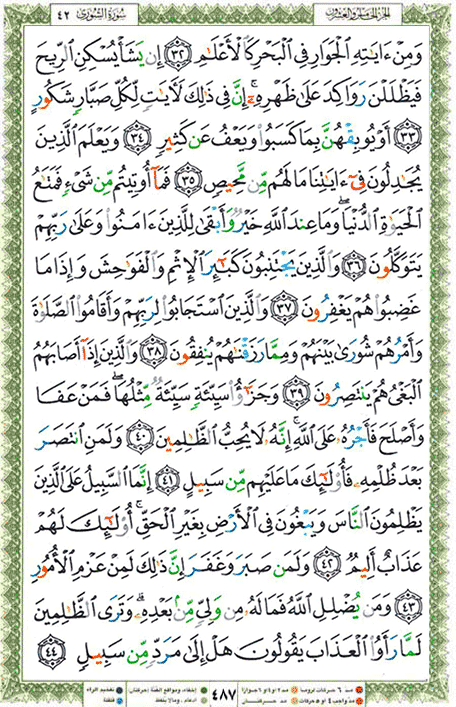 سُورَةُ الشُّورَىٰ ٤٢
الجُزءُ الخَامِسُ وَالعِشْرُونَ
وَمِنْ ءَايَٰتِهِ الْجَوَارِ فِي الْبَحْرِ كَالْأَعْلَٰمِ ٣٢ إِن يَشَأْ يُسْكِنِ الرِّيحَ
فَيَظْلَلْنَ رَوَاكِدَ عَلَىٰ ظَهْرِهِۦٓ ۚ إِنَّ فِي ذَٰلِكَ لَأٓيَٰتٍ لِّكُلِّ صَبَّارٍ شَكُورٍ
٣٣ أَوْ يُوبِقْهُنَّ بِمَا كَسَبُوا۟ وَيَعْفُ عَن كَثِيرٍ ٣٤ وَيَعْلَمَ الَّذِينَ
يُجَٰدِلُونَ فِيٓ ءَايَٰتِنَا مَا لَهُم مِّن مَّحِيصٍ ٣٥ فَمَآ أُوتِيتُم مِّن شَيْءٍ فَمَتَٰعُ
الْحَيَوٰةِ الدُّنْيَا ۖ وَمَا عِندَ اللَّهِ خَيْرٌ وَأَبْقَىٰ لِلَّذِينَ ءَامَنُوا۟ وَعَلَىٰ رَبِّهِمْ
يَتَوَكَّلُونَ ٣٦ وَالَّذِينَ يَجْتَنِبُونَ كَبَٰٓئِرَ الْإِثْمِ وَالْفَوَٰحِشَ وَإِذَا مَا
غَضِبُوا۟ هُمْ يَغْفِرُونَ ٣٧ وَالَّذِينَ اسْتَجَابُوا۟ لِرَبِّهِمْ وَأَقَامُوا۟ الصَّلَوٰةَ
وَأَمْرُهُمْ شُورَىٰ بَيْنَهُمْ وَمِمَّا رَزَقْنَٰهُمْ يُنفِقُونَ ٣٨ وَالَّذِينَ إِذَآ أَصَابَهُمُ
الْبَغْيُ هُمْ يَنتَصِرُونَ ٣٩ وَجَزَٰٓؤُا۟ سَيِّئَةٍ سَيِّئَةٌ مِّثْلُهَا ۖ فَمَنْ عَفَا
وَأَصْلَحَ فَأَجْرُهُۥ عَلَى اللَّهِ ۚ إِنَّهُۥ لَا يُحِبُّ الظَّٰلِمِينَ ٤٠ وَلَمَنِ انتَصَرَ
بَعْدَ ظُلْمِهِۦ فَأُو۟لَٰٓئِكَ مَا عَلَيْهِم مِّن سَبِيلٍ ٤١ إِنَّمَا السَّبِيلُ عَلَى الَّذِينَ
يَظْلِمُونَ النَّاسَ وَيَبْغُونَ فِي الْأَرْضِ بِغَيْرِ الْحَقِّ ۚ أُو۟لَٰٓئِكَ لَهُمْ
عَذَابٌ أَلِيمٌ ٤٢ وَلَمَن صَبَرَ وَغَفَرَ إِنَّ ذَٰلِكَ لَمِنْ عَزْمِ الْأُمُورِ
٤٣ وَمَن يُضْلِلِ اللَّهُ فَمَا لَهُۥ مِن وَلِيٍّ مِّنۢ بَعْدِهِۦ ۗ وَتَرَى الظَّٰلِمِينَ
لَمَّا رَأَوُا۟ الْعَذَابَ يَقُولُونَ هَلْ إِلَىٰ مَرَدٍّ مِّن سَبِيلٍ ٤٤
٤٨٧